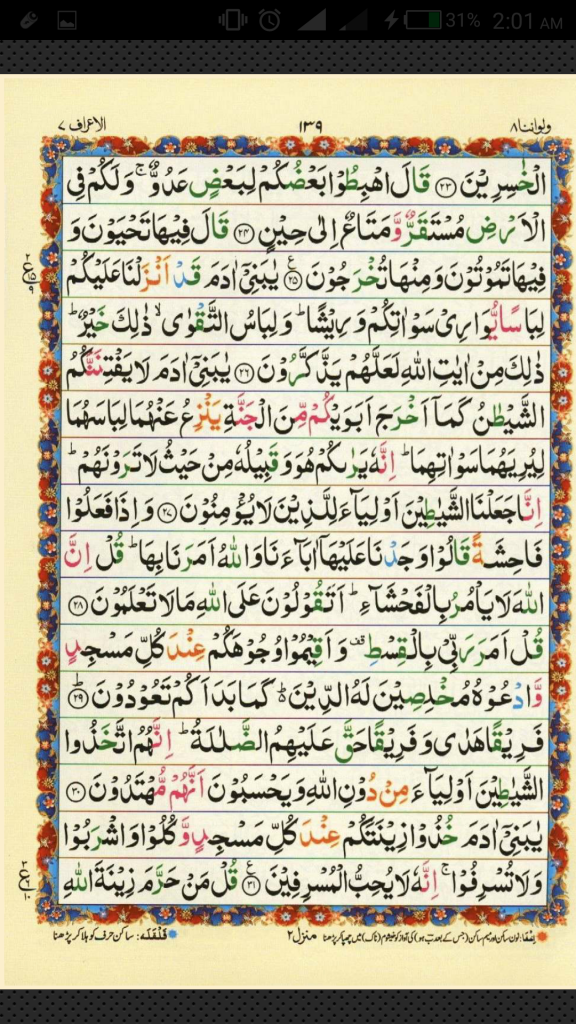 31% 2:01 AM
الاعراف ٧ ١٣٩ ولواننا ٨
الْخٰسِرِيْنَ ﴿۲۳﴾ قَالَ اهْبِطُوْا بَعْضُكُمْ لِبَعْضٍ عَدُوٌّ ۚ وَلَكُمْ فِى
الْاَرْضِ مُسْتَقَرٌّ وَّمَتَاعٌ اِلٰى حِيْنٍ ﴿۲۴﴾ قَالَ فِيْهَا تَحْيَوْنَ وَ
فِيْهَا تَمُوْتُوْنَ وَمِنْهَا تُخْرَجُوْنَ ﴿۲۵﴾ ع يٰبَنِىْۤ اٰدَمَ قَدْ اَنْزَلْنَا عَلَيْكُمْ
لِبَاسًا يُّوَارِىْ سَوْاٰتِكُمْ وَرِيْشًا ؕ وَلِبَاسُ التَّقْوٰى ۙ ذٰلِكَ خَيْرٌ ؕ
ذٰلِكَ مِنْ اٰيٰتِ اللّٰهِ لَعَلَّهُمْ يَذَّكَّرُوْنَ ﴿۲۶﴾ يٰبَنِىْۤ اٰدَمَ لَا يَفْتِنَنَّكُمُ
الشَّيْطٰنُ كَمَاۤ اَخْرَجَ اَبَوَيْكُمْ مِّنَ الْجَنَّةِ يَنْزِعُ عَنْهُمَا لِبَاسَهُمَا
لِيُرِيَهُمَا سَوْاٰتِهِمَا ؕ اِنَّهٗ يَرٰىكُمْ هُوَ وَقَبِيْلُهٗ مِنْ حَيْثُ لَا تَرَوْنَهُمْ ؕ
اِنَّا جَعَلْنَا الشَّيٰطِيْنَ اَوْلِيَآءَ لِلَّذِيْنَ لَا يُؤْمِنُوْنَ ﴿۲۷﴾ وَاِذَا فَعَلُوْا
فَاحِشَةً قَالُوْا وَجَدْنَا عَلَيْهَاۤ اٰبَآءَنَا وَاللّٰهُ اَمَرَنَا بِهَا ؕ قُلْ اِنَّ
اللّٰهَ لَا يَاْمُرُ بِالْفَحْشَآءِ ؕ اَتَقُوْلُوْنَ عَلَى اللّٰهِ مَا لَا تَعْلَمُوْنَ ﴿۲۸﴾
قُلْ اَمَرَ رَبِّىْ بِالْقِسْطِ ۟ وَاَقِيْمُوْا وُجُوْهَكُمْ عِنْدَ كُلِّ مَسْجِدٍ
وَّادْعُوْهُ مُخْلِصِيْنَ لَهُ الدِّيْنَ ؕ۬ كَمَا بَدَاَكُمْ تَعُوْدُوْنَ ؕ ﴿۲۹﴾
فَرِيْقًا هَدٰى وَفَرِيْقًا حَقَّ عَلَيْهِمُ الضَّلٰلَةُ ؕ اِنَّهُمُ اتَّخَذُوا
الشَّيٰطِيْنَ اَوْلِيَآءَ مِنْ دُوْنِ اللّٰهِ وَيَحْسَبُوْنَ اَنَّهُمْ مُّهْتَدُوْنَ ﴿۳۰﴾
يٰبَنِىْۤ اٰدَمَ خُذُوْا زِيْنَتَكُمْ عِنْدَ كُلِّ مَسْجِدٍ وَّكُلُوْا وَاشْرَبُوْا
وَلَا تُسْرِفُوْا ۚ اِنَّهٗ لَا يُحِبُّ الْمُسْرِفِيْنَ ﴿۳۱﴾ ع قُلْ مَنْ حَرَّمَ زِيْنَةَ اللّٰهِ
منزل ٢
قَلْقَلَہ: ساکن حرف کو ہلا کر پڑھنا